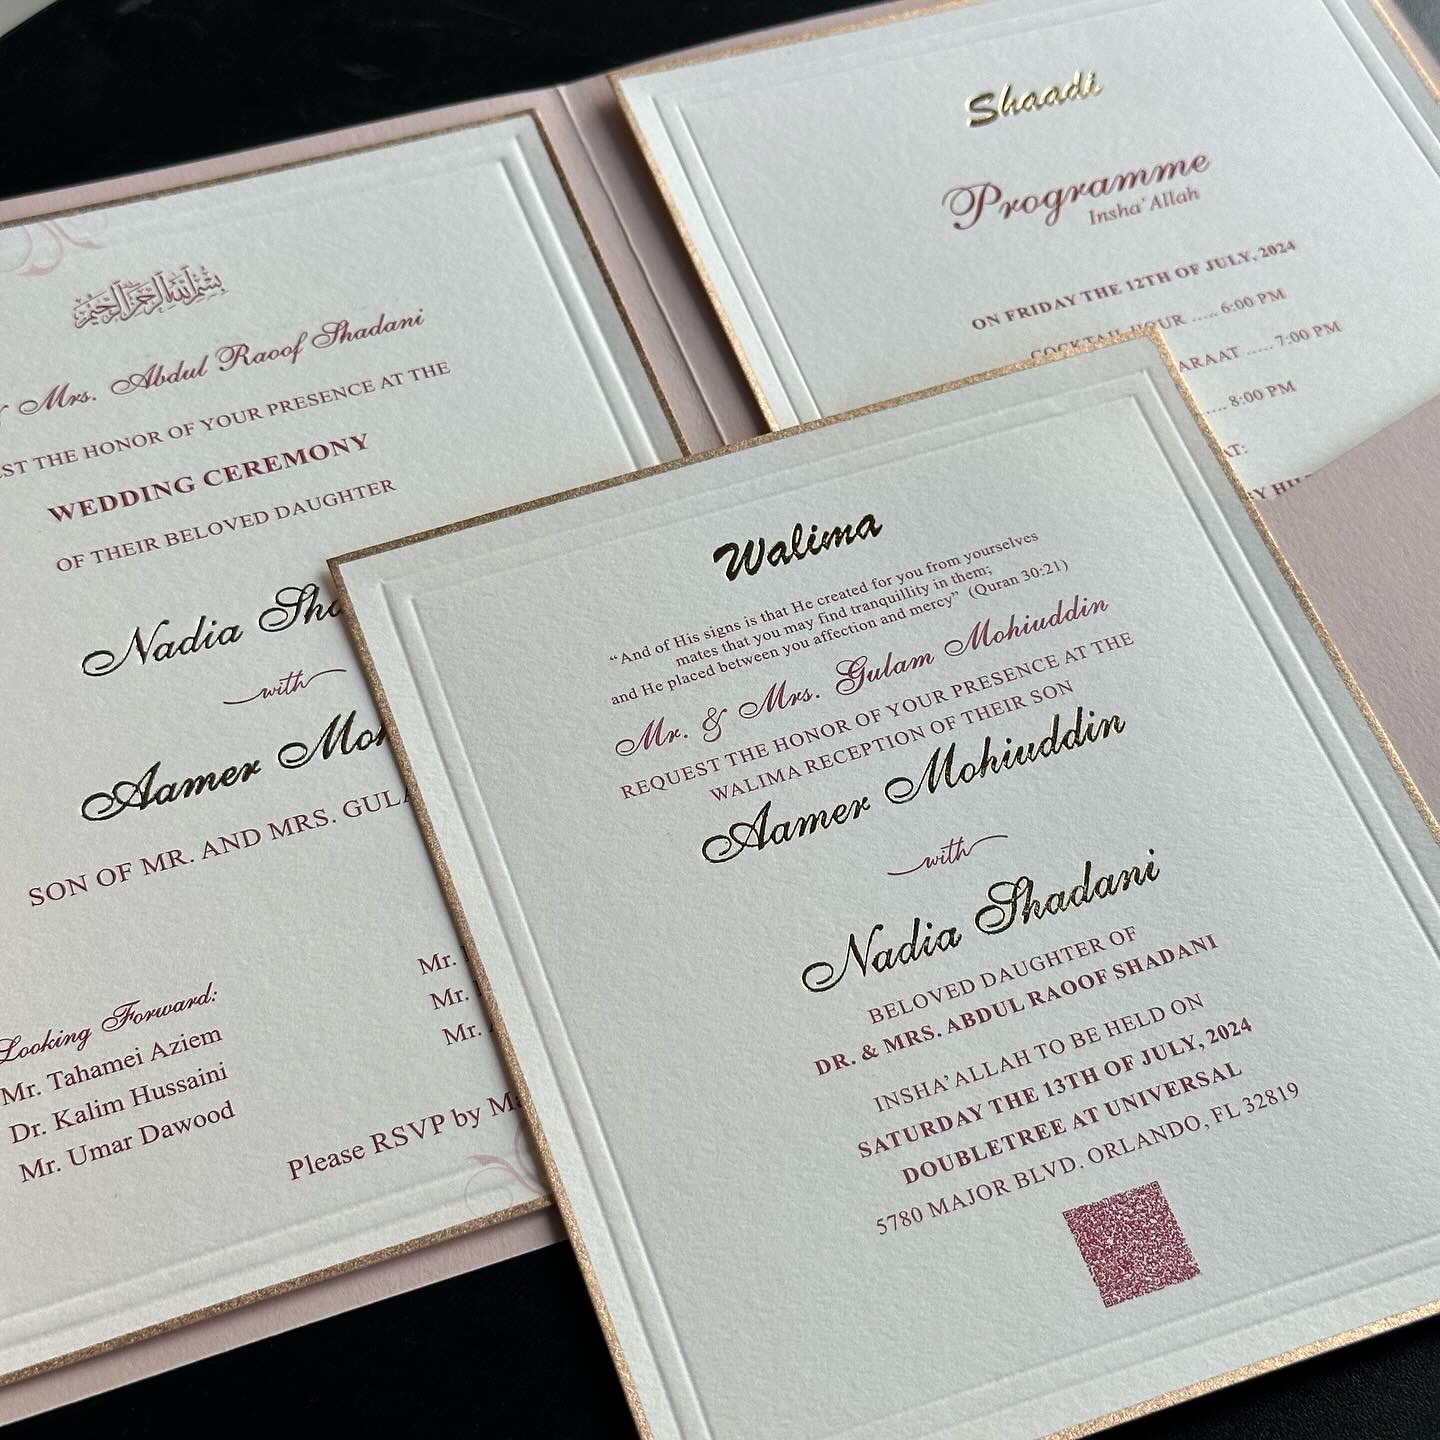 بسم الله الرحمن الرحيم
Mrs. Abdul Raoof Shadani
THE HONOR OF YOUR PRESENCE AT THE
WEDDING CEREMONY
OF THEIR BELOVED DAUGHTER
Nadia
with
Aamer
SON OF MR. AND MRS.
Looking Forward:
Mr. Tahamei Aziem
Dr. Kalim Hussaini
Mr. Umar Dawood
Mr.
Mr.
Mr.
Please RSVP by
Shaadi
Programme
Insha' Allah
ON FRIDAY THE 12TH OF JULY, 2024
COCKTAIL HOUR ..... 6:00 PM
..... 7:00 PM
.... 8:00 PM
Walima
“And of His signs is that He created for you from yourselves
mates that you may find tranquillity in them;
and He placed between you affection and mercy” (Quran 30:21)
Mr. & Mrs. Gulam Mohiuddin
REQUEST THE HONOR OF YOUR PRESENCE AT THE
WALIMA RECEPTION OF THEIR SON
Aamer Mohiuddin
with
Nadia Shadani
BELOVED DAUGHTER OF
DR. & MRS. ABDUL RAOOF SHADANI
INSHA’ ALLAH TO BE HELD ON
SATURDAY THE 13TH OF JULY, 2024
DOUBLETREE AT UNIVERSAL
5780 MAJOR BLVD. ORLANDO, FL 32819